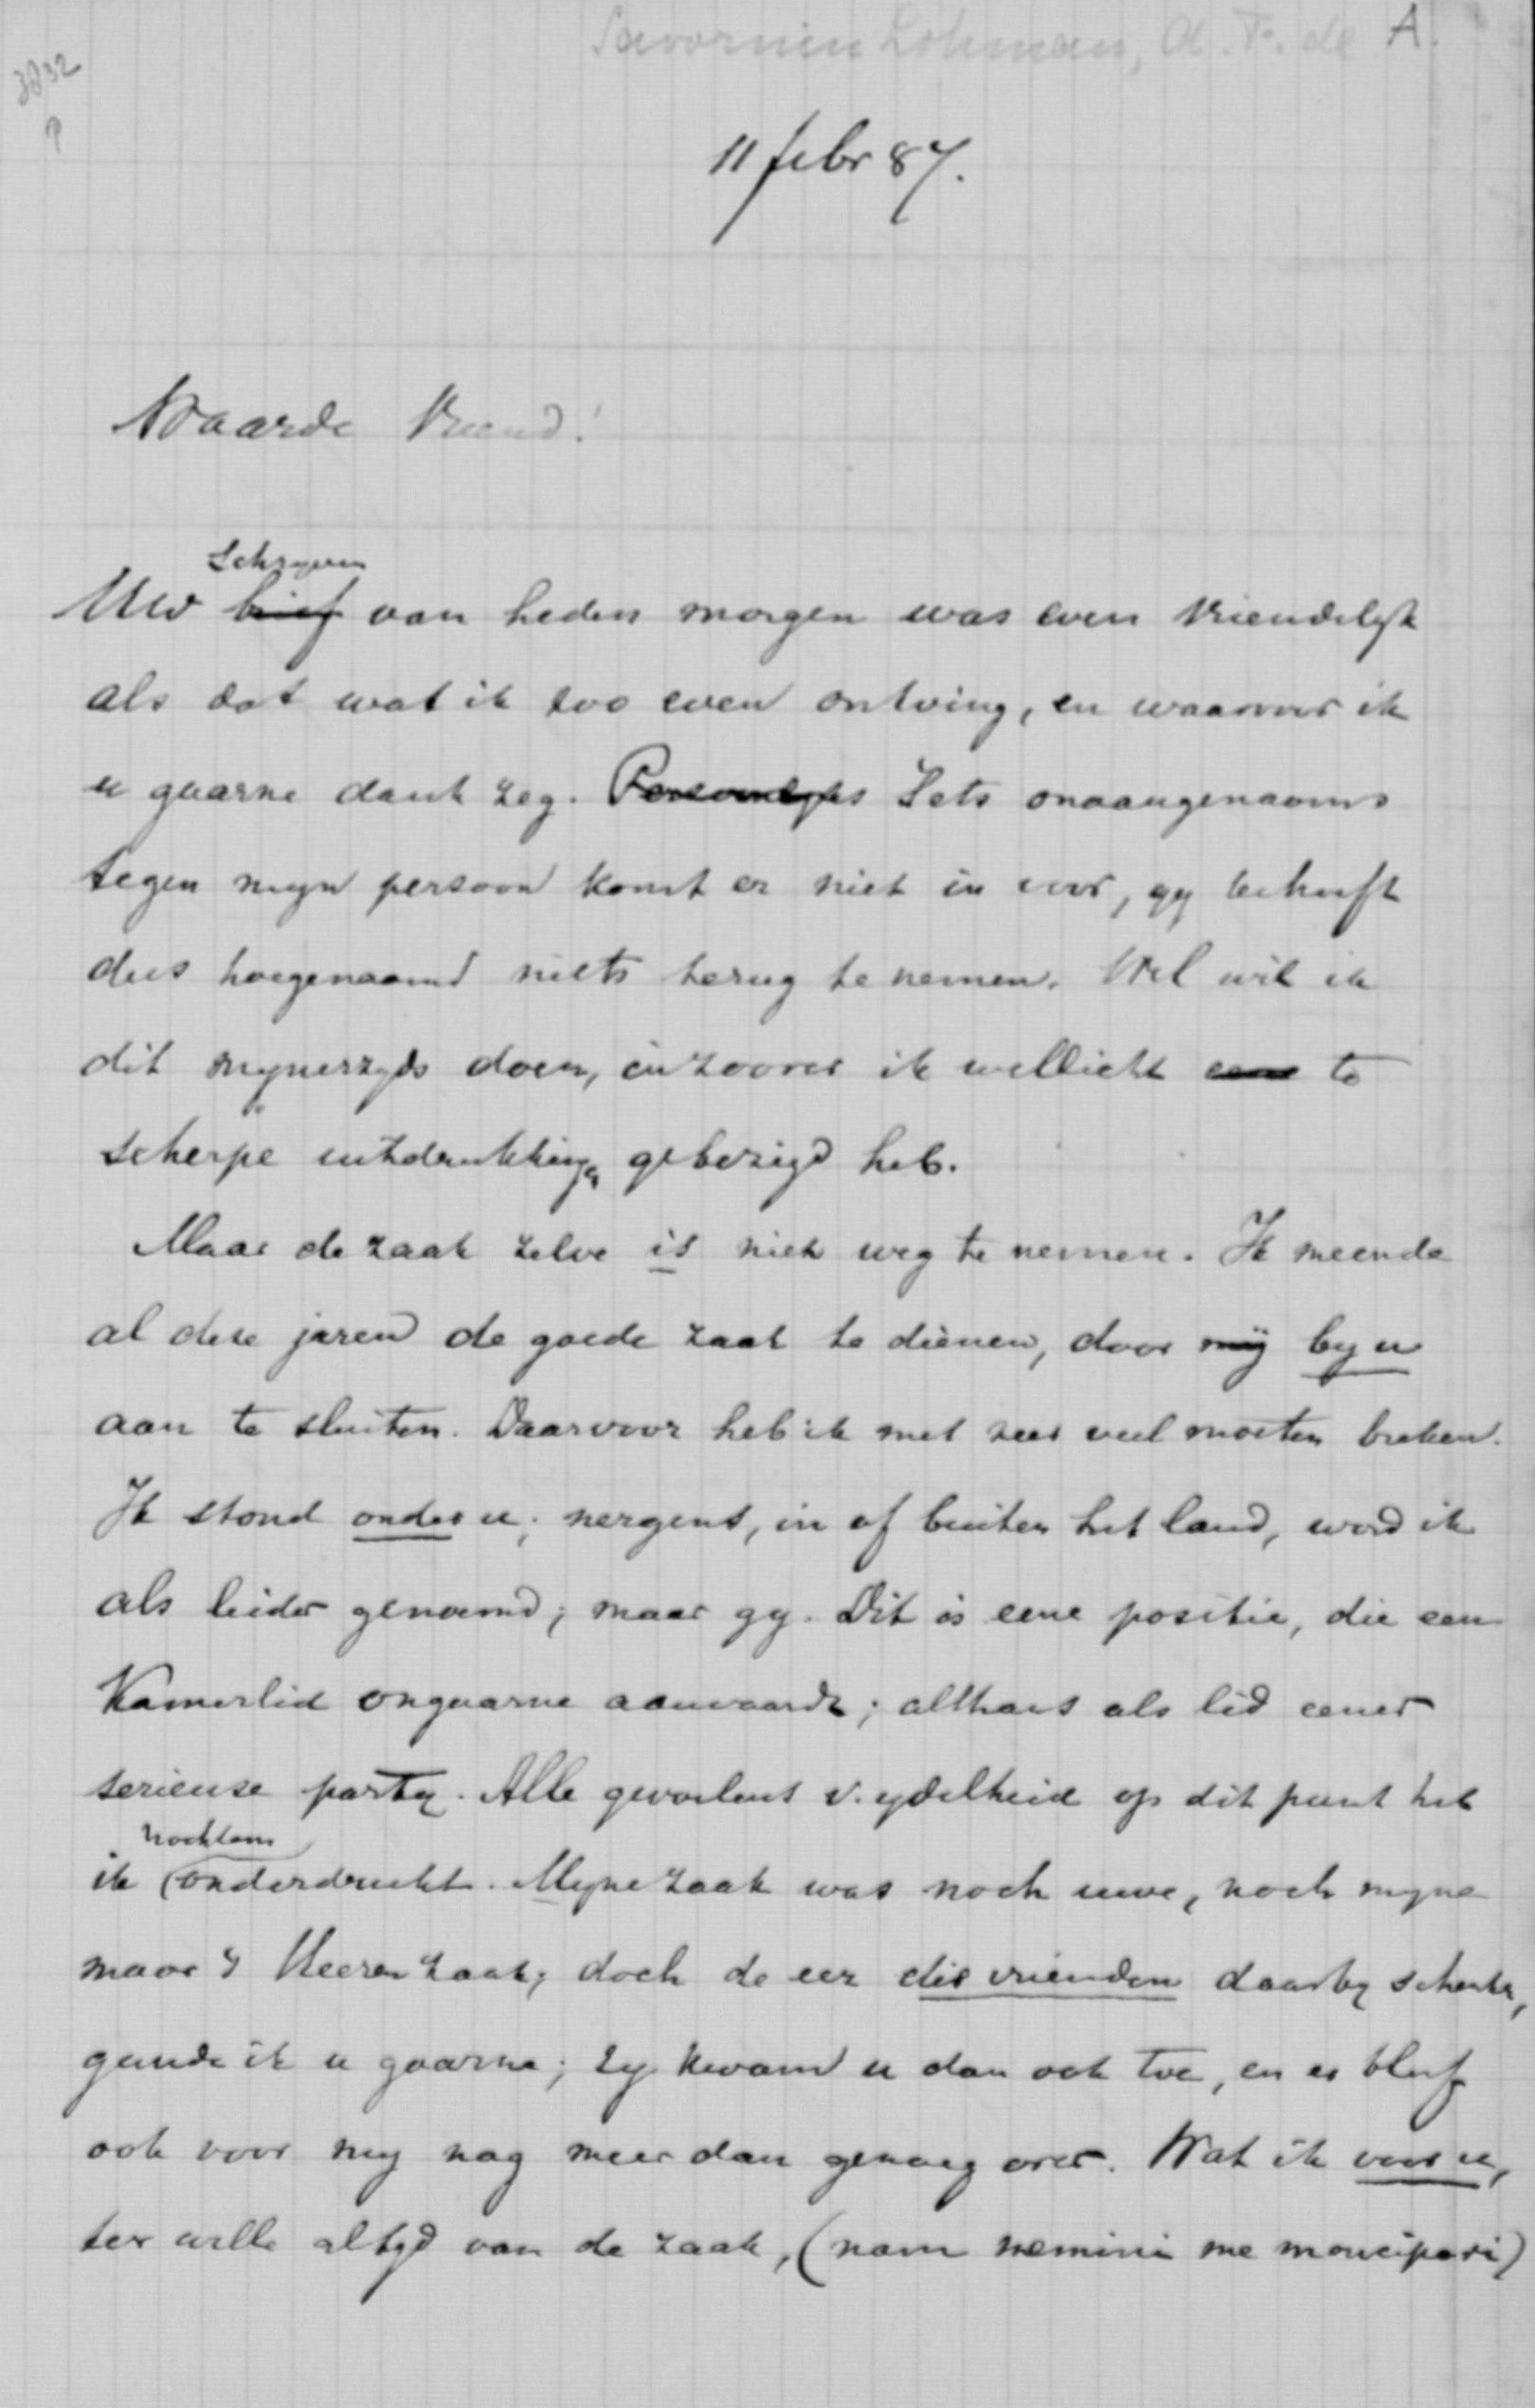 Savornin Lohman, A. F. de A.
3832
P
11 febr 87.
Waarde Vriend!
Schryven
Uw brief van heden morgen was even vriendelyk
als dat wat ik zoo even ontving, en waarvoor ik
u gaarne dank zeg. Persoonlyks Iets onaangenaams
tegen myn persoon komt er niet in voor, gy behoeft
dus hoegenaamd niets terug te nemen. Wel wil ik
dit mynerzyds doen, inzoover ik wellicht eene te
scherpe uitdrukkingen gebezigd heb.
Maar de zaak zelve is niet weg te nemen. Ik meende
al deze jaren de goede zaak te dienen, door mij by u
aan te sluiten. Daarvoor heb ik met zeer veel moeten breken.
Ik stond onder u; nergens, in of buiten het land, werd ik
als leider genoemd; maar gy. Dit is eene positie, die een
Kamerlid ongaarne aanvaardt; althans als lid eener
serieuse party. Alle gevoelens v. ydelheid op dit punt heb
nochtans
ik onderdrukt. Myne zaak was noch uwe, noch myne
maar 's Heeren zaak; doch de eer die vrienden daarby schenken,
gunde ik u gaarne; zy kwam u dan ook toe, en er bleef
ook voor my nog meer dan genoeg over. Wat ik voor u,
ter wille altyd van de zaak, (nam nemini me mancipavi)